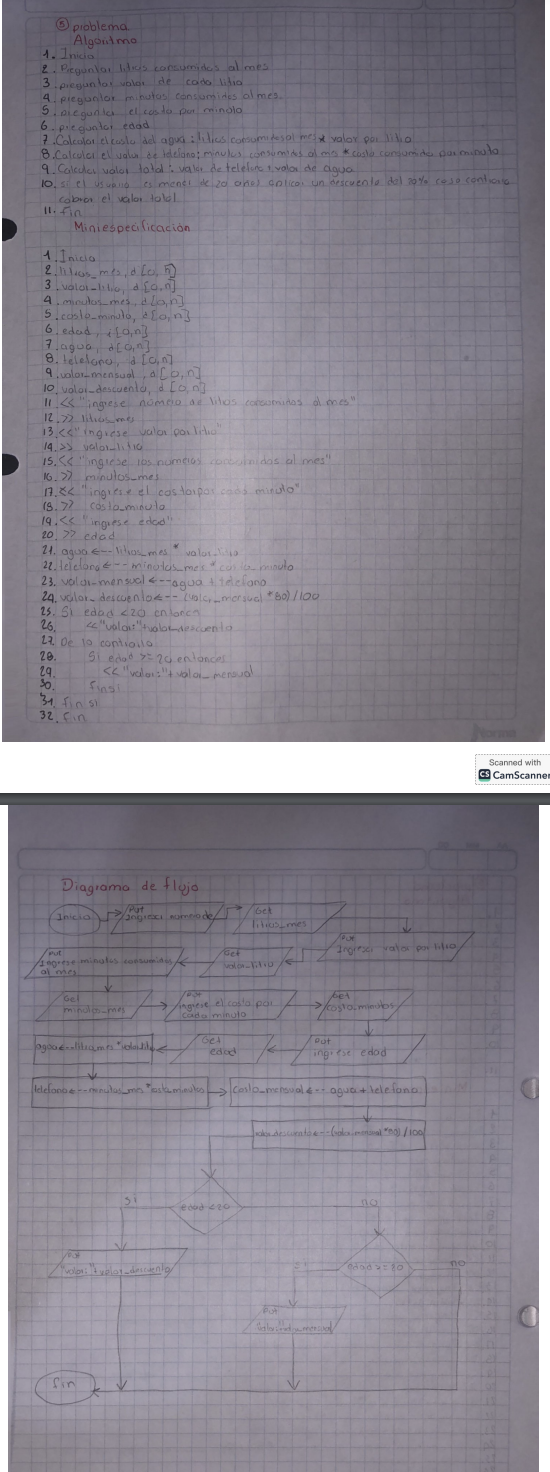 ⑤ problema
Algoritmo
1. Inicio
2. Preguntar litros consumidos al mes
3. preguntar valor de cada litro
4. preguntar minutos consumidos al mes
5. preguntar el costo por minuto
6. preguntar edad
7. Calcular el costo del agua: litros consumidos al mes * valor por litro
8. Calcular el valor de telefono: minutos consumidos al mes * costo consumido por minuto
9. Calcular valor total: valor de telefono + valor de agua
10. si el usuario es menor de 20 años aplicar un descuento del 20% caso contrario
cobrar el valor total
11. Fin
Miniespecificación
1. Inicio
2. litros_mes, d [0, n]
3. valor-litro, d [0,n]
4. minutos_mes, d [0,n]
5. costo_minuto, d [0,n]
6. edad, d [0,n]
7. agua, d [0,n]
8. telefono, d [0,n]
9. valor_mensual, d [0,n]
10. valor_descuento, d [0,n]
11. << "ingrese numero de litros consumidos al mes"
12. >> litros_mes
13. << "ingrese valor por litro"
14. >> valor_litro
15. << "ingrese los numeros consumidos al mes"
16. >> minutos_mes
17. << "ingrese el costo por cada minuto"
18. >> costo_minuto
19. << "ingrese edad"
20. >> edad
21. agua <-- litros_mes * valor_litro
22. telefono <-- minutos_mes * costo_minuto
23. valor-mensual <-- agua + telefono
24. valor_descuento <-- (valor_mensual * 80) / 100
25. Si edad < 20 entonces
26. << "valor:" + valor_descuento
27. De lo contrario
28. Si edad >= 20 entonces
29. << "valor:" + valor_mensual
30. Finsi
31. fin si
32. fin
Norma
Scanned with
CS CamScanner
Diagrama de flujo
Inicio
Put
Ingresar numero de
Get
litros_mes
Put
Ingresar valor por litro
Get
valor-litro
Put
Ingrese minutos consumidos
al mes
Get
minutos_mes
Put
ingrese el costo por
cada minuto
Get
costo_minutos
Put
ingrese edad
Get
edad
agua <-- litros_mes * valor_litro
telefono <-- minutos_mes * costo_minutos
Costo_mensual <-- agua + telefono
valor_descuento <-- (valor_mensual * 80) / 100
Si
edad < 20
no
Put
"valor:" + valor_descuento
Si
edad >= 20
no
Put
"valor:"
fin